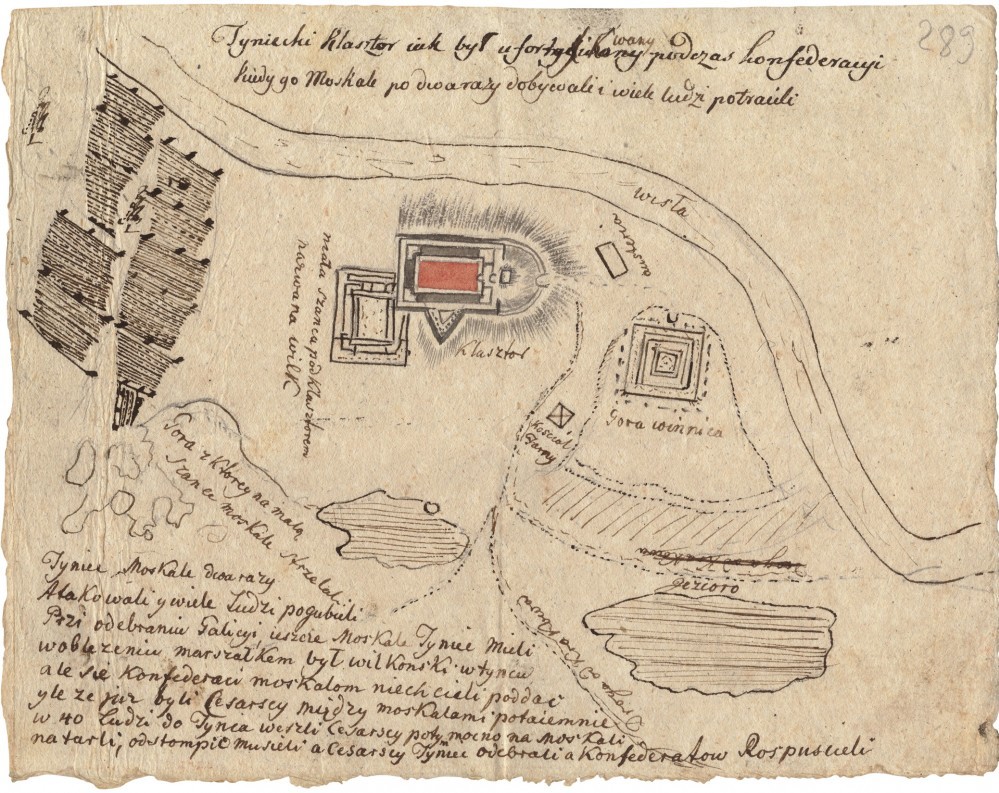 289
Tyniecki Klasztor iak był ufortyfikowany podczas konfederacyi
kiedy go Moskale po dwarazy dobywali i wiele ludzi potracili
Wisła
austeria
mała szanca pod Klasztorem
nazwana wilk
Klasztor
Gora winnica
Kościół
Farny
Gora z Ktorey na małą
szance moskale strzelali
jezioro
Droga z Krakowa
Tyniec Moskale dwarazy
Atakowali y wiele Ludzi pogubieli
Przi odebraniu Galicyi ieszcze Moskale Tyniec Mieli
w oblężeniu marszałkem był wilkonski w tyncu
ale sie Konfederaci moskalom niechcieli poddać
yle ze już byli Cesarscy między moskalami potaiemnie
w 40 Ludzi do Tynca weszli Cesarscy poty mocno na Moskali
natarli, odstompić musieli a Cesarscy Tyniec odebrali a Konfederatow Rospuscieli